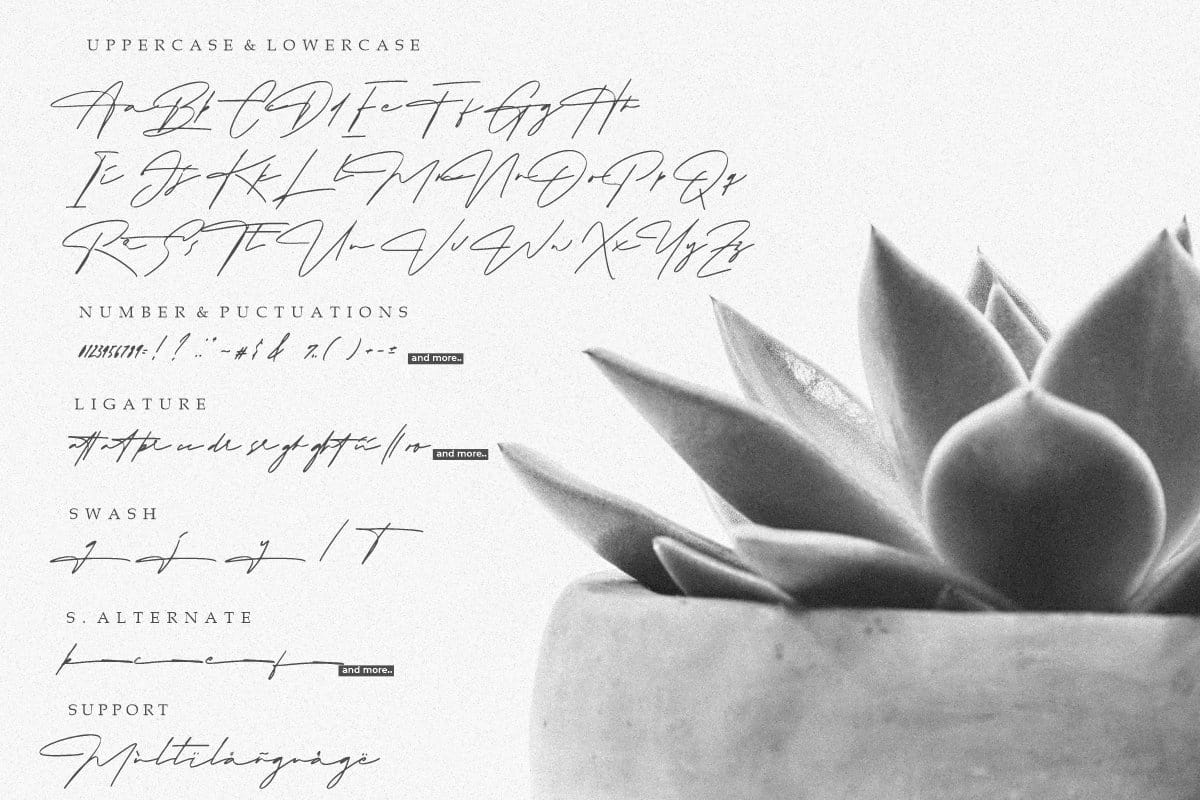 UPPERCASE & LOWERCASE
Aa Bb Cc Dd Ee Ff Gg Hh
Ii Jj Kk Ll Mm Nn Oo Pp Qq
Rr Ss Tt Uu Vv Ww Xx Yy Zz
NUMBER & PUCTUATIONS
0123456789= ! ? and more..
LIGATURE
and more..
SWASH
g j y l T
S. ALTERNATE
k c e f and more..
SUPPORT
Mùltïlåñguågë